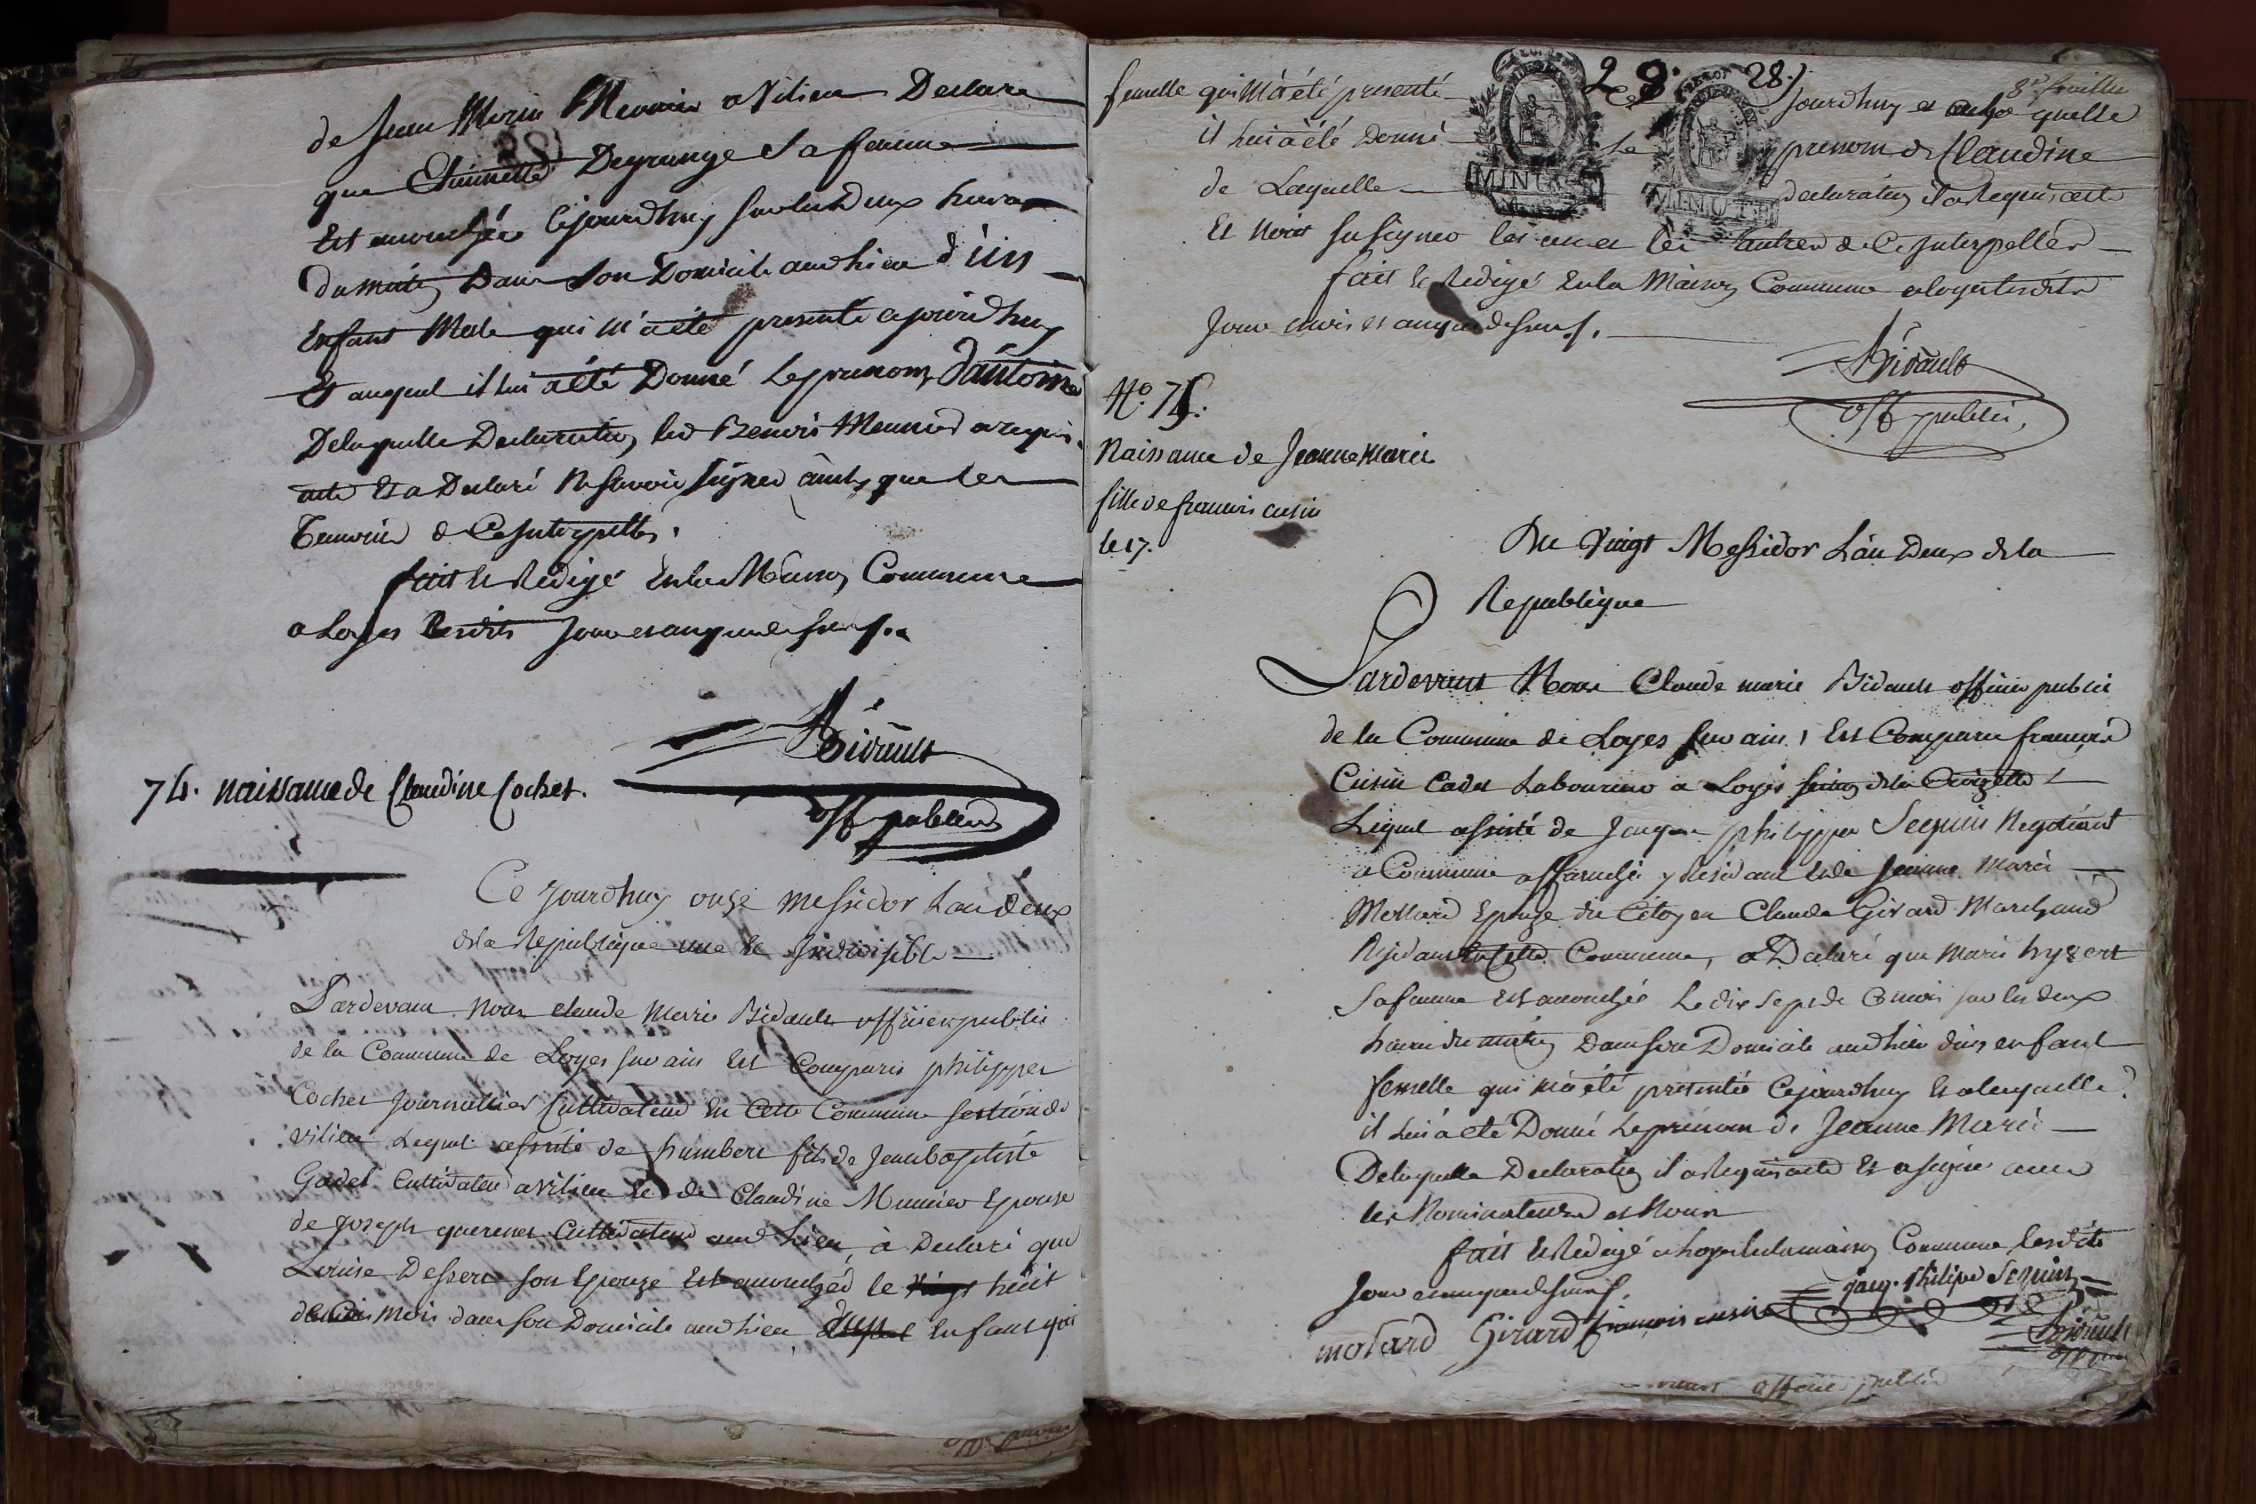 de Jean Marie Meunier a Vilieu Declare
que Etiennette Degrange Sa femme
Est accouchée Cejourdhuy sur les Deux heures
du matin Dans son Domicile audit lieu d'un
Enfant Male qui m'a été presenté cejourdhuy
Et auquel il lui a été Donné Le prenom d'antoine
De laquelle Declaration led Benoit Meunier a requis
acte Et a Declaré Ne savoir signer ainsy que les
Temoins de Ce Interpellés.
fait et Redigé En la Maison Commune
a Loyes Lesdits Jour et an que dessus.
Bidault
off public
74. naissance de Claudine Cochet.
Ce Jourdhuy onze messidor L'an deux
de la Republique une et Indivisible
Pardevant Nous Claude Marie Bidault officier public
de la Commune de Loyes sur ain Est Comparu philippe
Cochet Journallier Cultivateur En Cette Commune section de
Vilieu Lequel assisté de humbert fils de Jean baptiste
Godet Cultivateur a Vilieu et de Claudine Munier Epouse
de Joseph Cultivateur aud lieu, à Declaré que
Louise Desserre son Epouze Est accouchée le huit
de mois dans son Domicile aud lieu d'un Enfant qui
28.
28.
8e feuille
femelle qui M'a été presenté Jourdhuy et a laquelle
il lui a été Donné Le prenom de Claudine
de Laquelle declaration il a Requis acte
Et Nous susigné les uns et les autres de Ce Interpellés
fait et Redigé En la Maison Commune a loyes lesdits
Jour mois et an que dessus.
Bidault
off public
No. 75.
Naissance de Jeanne Marie
fille de francois cusin
le 17.
Du Vingt Messidor L'an Deux de la
Republique
Pardevant Nous Claude marie Bidault officier public
de la Commune de Loyes sur ain, Est Comparu francois
Cusin Cadet Laboureur a Loyes section de la Croizette
Lequel assisté de Jaques philippe Seguin Negotiant
a Commune affranchie y Residant et de Jeanne Marie
Mollard Epouze du Citoyen Claude Girard Marchand
Residant En Cette Commune, a Declaré que Marie
Sa femme Est accouchée Le dix sept de Ce mois sur les deux
heures du matin Dans son Domicile aud lieu d'un enfant
femelle qui m'a été presentée Cejourdhuy Et a laquelle
il lui a été Donné Le prenom de Jeanne Marie
De laquelle Declaration il a Requis acte Et a signé avec
les Nominateurs et Nous
fait et Redigé a loyes en la maison Commune lesdits
Jour et an que dessus.
Jaq. Philipe Seguin
molard Girard francois cusin
Bidault
officier public